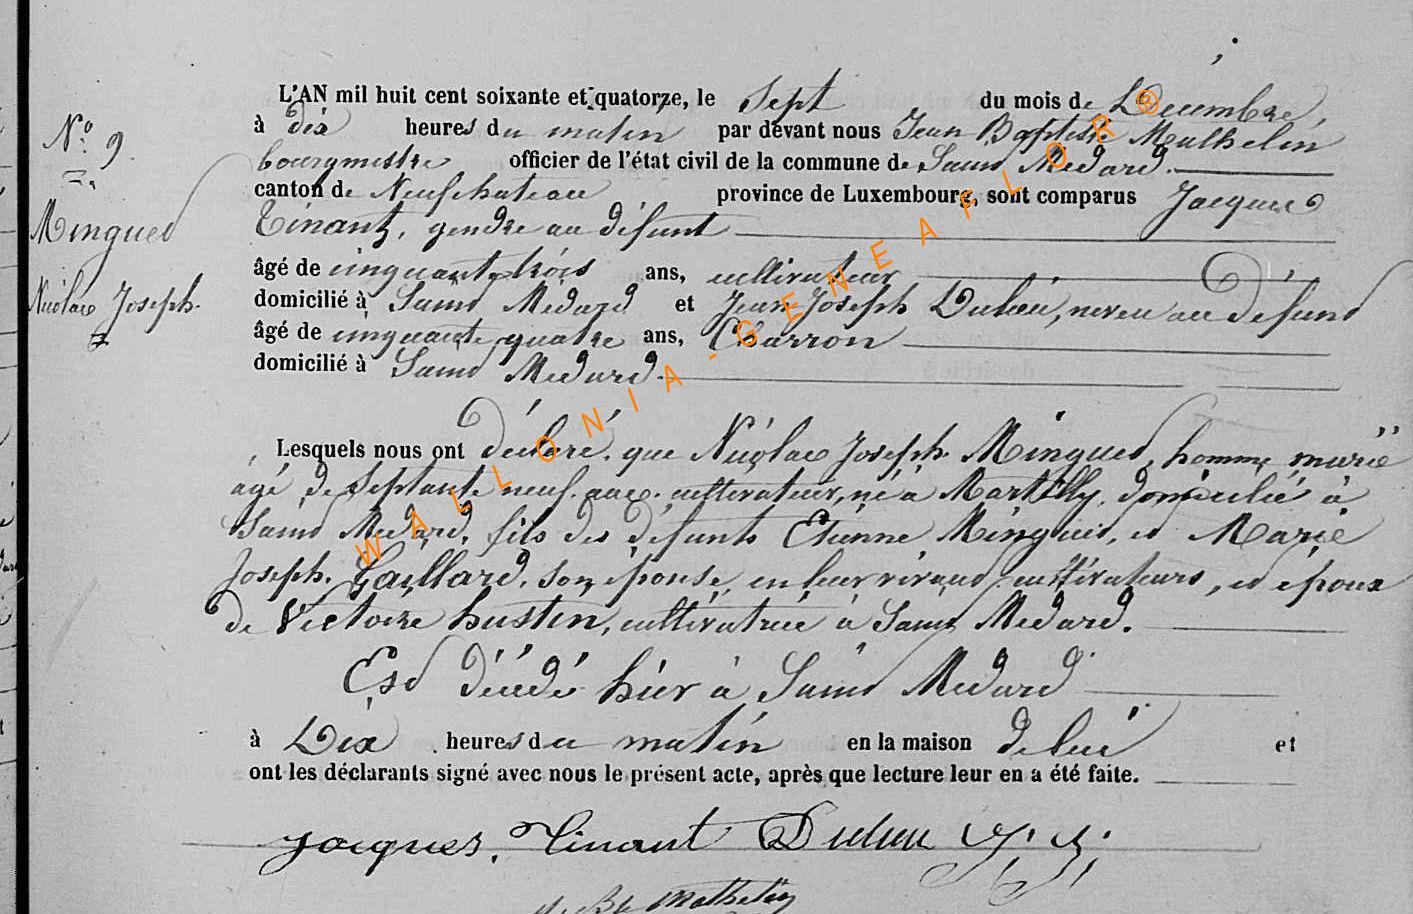 L'AN mil huit cent soixante et quatorze, le Sept du mois de Décembre,
N.° 9.
à dix heures du matin par devant nous Jean Baptiste Mathelin
bourgmestre officier de l'état civil de la commune de Saint Médard.
canton de Neufchateau province de Luxembourg, sont comparus Jacques
Minguet
Tinant, gendre au défunt
âgé de cinquante trois ans, cultivateur
Nicolas Joseph.
domicilié à Saint Médard et Jean Joseph Dulieu, neveu au défunt
âgé de cinquante quatre ans, Charron
domicilié à Saint Médard.
Lesquels nous ont déclaré, que Nicolas Joseph Minguet, homme marié
âgé de Septante neuf ans. cultivateur, né à Martilly, domicilié à
Saint Médard, fils des défunts Etienne Minguet, et Marie
Joseph. Gaillard, son épouse, en leur vivant cultivateurs, et époux
de Victoire hustin, cultivatrice à Saint Médard.
Est décédé hier à Saint Médard
à Dix heures du matin en la maison de lui et
ont les déclarants signé avec nous le présent acte, après que lecture leur en a été faite.
Jacques Tinant Dulieu J. J.
J. Bte Mathelin
WALLONIA - GENEAFLOR ®